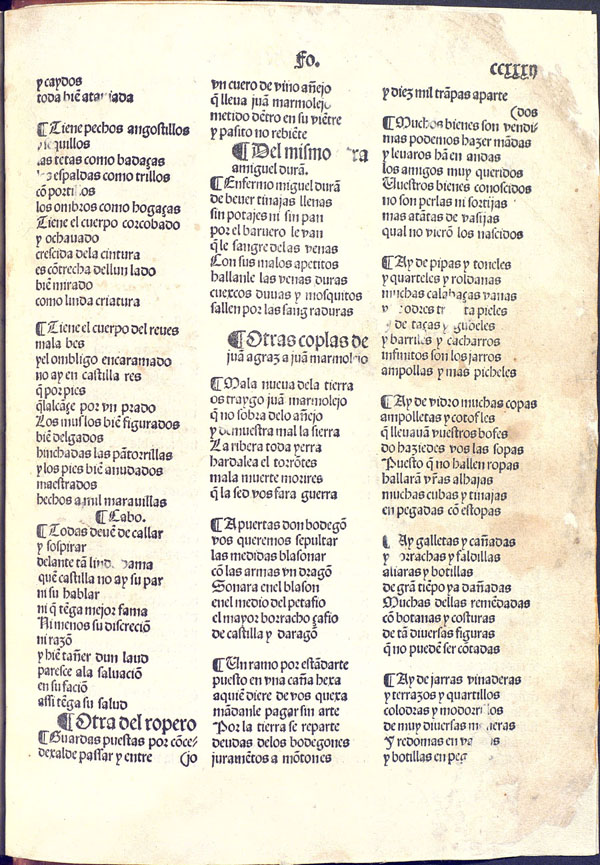 Fo. ccxxxij
y caydos
toda biẽ atauiada
¶ Tiene pechos angostillos
las tetas como badaças
espaldas como trillos
cõ
los ombros como hogaças
Tiene el cuerpo corcobado
y ochauado
crescida dela cintura
es cõtrecha dellun lado
biẽ mirado
como linda criatura
¶ Tiene el cuerpo del reues
mala bes
yel ombligo encaramado
no ay en castilla res
q̃ por pies
q̃lalcãçe por vn prado
Los muslos biẽ figurados
biẽ delgados
hinchadas las pãtorrillas
y los pies biẽ anudados
maestrados
hechos a mil marauillas
¶ Cabo.
¶ Todas deuẽ de callar
y sospirar
delante tã linda dama
quẽ castilla no ay su par
ni su hablar
ni q̃ tẽga mejor fama
Ni menos su discreciõ
ni razõ
y biẽ tañer dun laud
paresce ala saluaciõ
en su faciõ
assi tẽga su salud
¶ Otra del ropero
¶ Guardas puestas por cõce-
dexalde passar y entre (jo
vn cuero de vino añejo
q̃ lleua juã marmolejo
metido dẽtro en su viẽtre
y pasito no rebiẽte
¶ Del mismo ra
amiguel durã.
¶ Enfermo miguel durã
de beuer tinajas llenas
sin potajes ni sin pan
por el baruero le van
q̃ le sangre delas venas
Con sus malos apetitos
hallanle las venas duras
cuexcos duuas y mosquitos
sallen por las sangraduras
¶ Otras coplas de
juã agraz a juã marmolejo
¶ Mala nueua dela tierra
os traygo juã marmolejo
q̃ no sobra delo añejo
y demuestra mal la sierra
La ribera toda yerra
hardalea el torrõtes
mala muerte morires
q̃ la sed vos fara guerra
¶ A puertas don bodegõ
vos queremos sepultar
las medidas blasonar
cõ las armas vn dragõ
Sonara enel blason
enel medio del petafio
el mayor borracho çafio
de castilla y daragõ
¶ Un ramo por estãdarte
puesto en vna caña hexa
aquiẽ diere de vos quexa
mãdanle pagar sin arte
Por la tierra se reparte
deudas delos bodegones
juramẽtos a mõtones
y diez mil trãpas aparte
(dos
¶ Muchos bienes son vendi-
mas podemos hazer mãdas
y leuaros hã en andas
los amigos muy queridos
Vuestros bienes conoscidos
no son perlas ni sortijas
mas atãtas de vasijas
qual no vierõ los nascidos
¶ Ay de pipas y toneles
y quarteles y roldanas
muchas calabaças vanas
y odres pieles
y de taças y
y barriles y cacharros
infinitos son los jarros
ampollas y mas picheles
¶ Ay de vidro muchas copas
ampolletas y cotofles
q̃ lleuauã vuestros bofes
do haziedes vos las sopas
Puesto q̃ no hallen ropas
hallarã vr̃as alhajas
muchas cubas y tinajas
en pegadas cõ estopas
¶ Ay galletas y cañadas
y borrachas y faldillas
aliaras y botillas
de grã tiẽpo ya dañadas
Muchas dellas remẽdadas
cõ botanas y costuras
de tã diuersas figuras
q̃ no puedẽ ser cõtadas
¶ Ay de jarras vinaderas
y terrazos y quartillos
colodras y
de muy diuersas maneras
Y redomas en
y botillas en